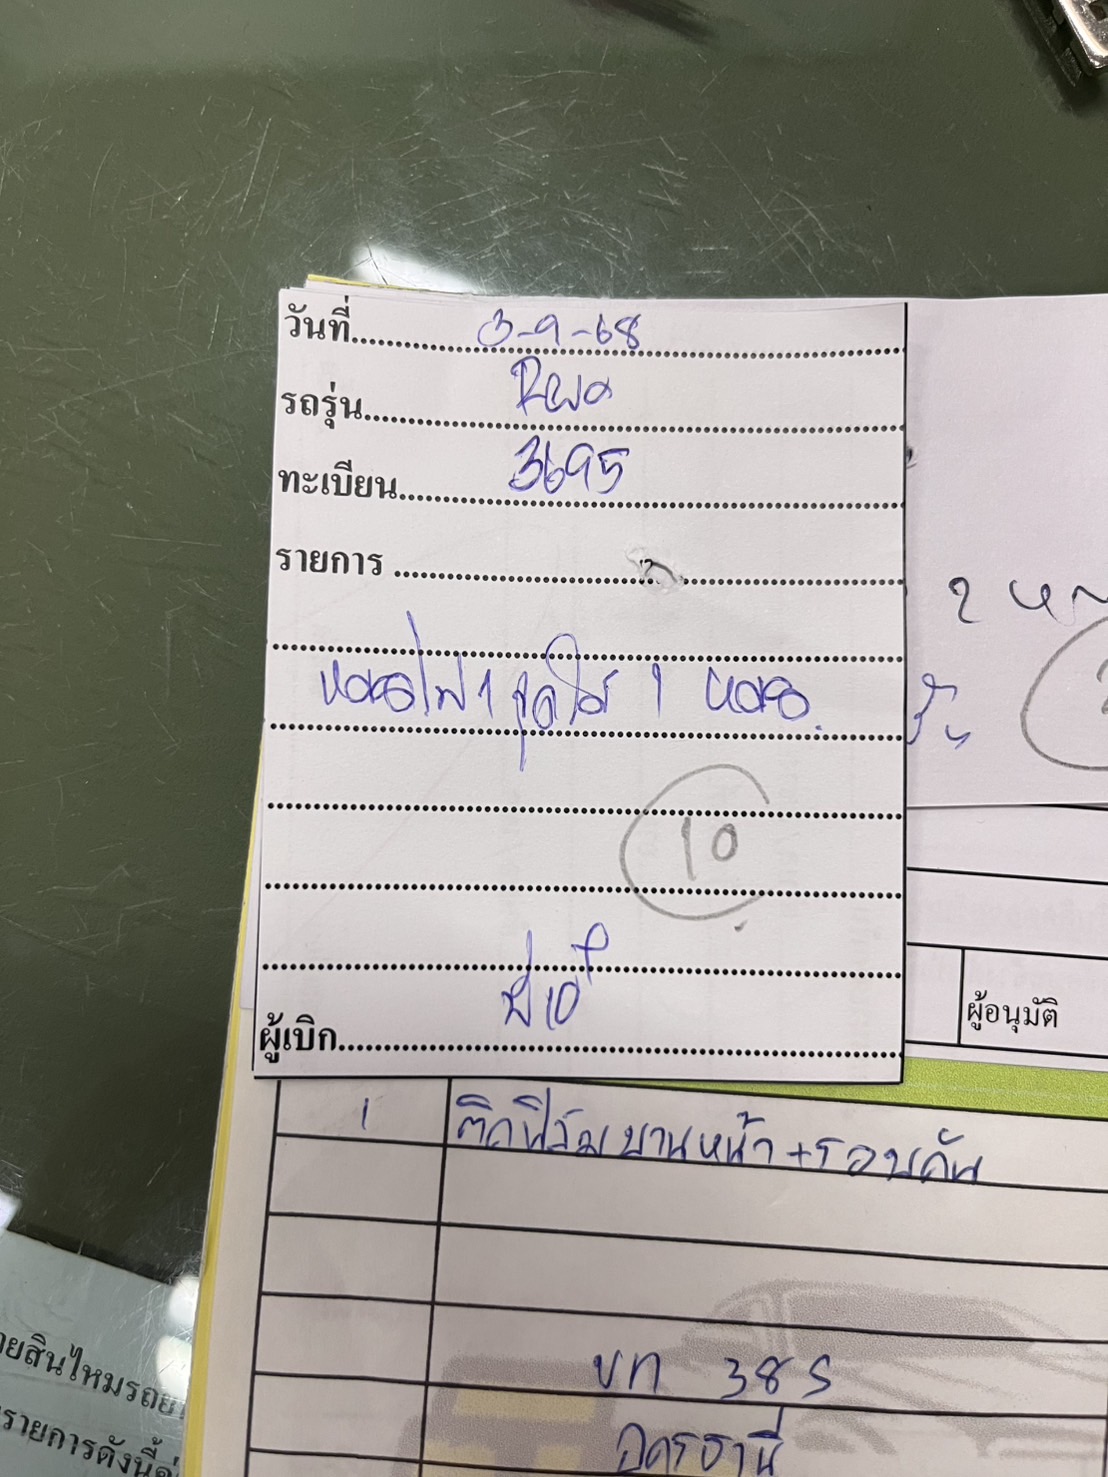 วันที่ 3-9-68
รถรุ่น
ทะเบียน 3695
รายการ
หลอดไฟ 1 จุดใส่ 1 หลอด.
10
ผู้เบิก
2
ผู้อนุมัติ
1 ติดฟิล์มบานหน้า+รอบคัน
ขท 385
อุดรธานี
ายสินไหมรถย
รายการดังนี้